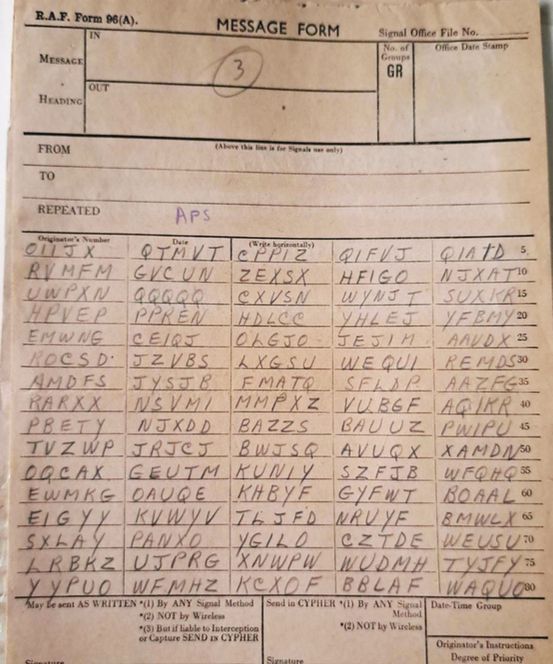 R.A.F. Form 96(A).
MESSAGE FORM
Signal Office File No.
IN
No. of Groups
GR
Office Date Stamp
MESSAGE
3
OUT
HEADING
FROM
(Above this line is for Signals use only)
TO
REPEATED
APS
Originator's Number Date (Write horizontally)
OIIJX QTMVT CPPIZ QIFVJ QIATD 5
RVMFM GVCUN ZEXSX HFIGO NJXAT 10
UWPXN QQQQQ CXVSN WYNJT SUXKR 15
HPVEP PPREN HDLCC YHLEJ YFBMY 20
EMWNG CEIQJ OLGJO JEJIM AAVDX 25
ROCSD JZVBS LXGSU WEQUI REMDS 30
AMDFS JYSJB FMATQ SFLDP AAZFG 35
RARXX NSVMI MMPXZ VUBGF AQIKR 40
PBETY NJXDD BAZZS BAUUZ PWIPU 45
TVZWP JRJCJ BWJSQ AVUQX XAMDN 50
OQCAX GEUTM KUNIY SZFJB WFQHQ 55
EWMKG OAUQE KHBYF GYFWT BOAAL 60
EIGYY KVWYV TLJFD NRUYF BMWLX 65
SXLAY PANXO YGILO CZTDE WEUSU 70
LRBKZ UJPRG XNWPW WUDMH TYJFY 75
YYPUO WFMHZ KCXOF BBLAF WAQUO 80
May be sent AS WRITTEN *(1) By ANY Signal Method
*(2) NOT by Wireless
*(3) But if liable to Interception or Capture SEND IN CYPHER
Send in CYPHER *(1) By ANY Signal Method
*(2) NOT by Wireless
Date-Time Group
Originator's Instructions
Degree of Priority
Signature
Signature